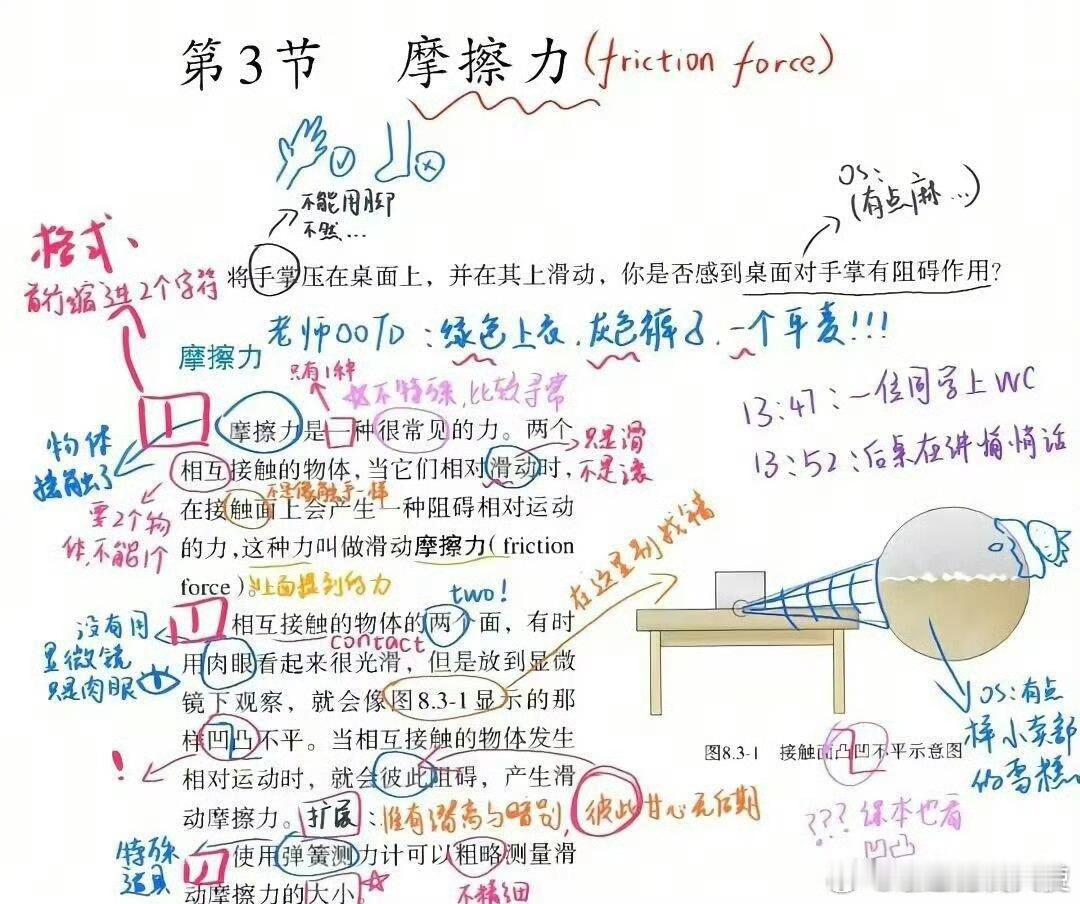 第3节 摩擦力(friction force)
不能用脚
不然...
OS:
(有点麻...)
格式、
首行缩进2个字符
将手掌压在桌面上，并在其上滑动，你是否感到桌面对手掌有阻碍作用？
老师OOTD：绿色上衣、灰色裤子、一个耳麦!!!
摩擦力
只有1种
☆不特殊，比较寻常
13:47：一位同学上WC
13:52：后桌在讲悄悄话
物体
接触了
摩擦力是一种很常见的力。两个
相互接触的物体，当它们相对滑动时，
只是滑
不是滚
要2个物
体，不能1个
在接触面上会产生一种阻碍相对运动
的力，这种力叫做滑动摩擦力(friction
force)。
上面提到的力
two!
在这里别找错
没有用
显微镜
只是肉眼
相互接触的物体的两个面，有时
contact
用肉眼看起来很光滑，但是放到显微
镜下观察，就会像图8.3-1显示的那
样凹凸不平。当相互接触的物体发生
!
相对运动时，就会彼此阻碍，产生滑
动摩擦力。
扩展：惟有潜离与暗别，彼此甘心无后期
特殊
道具
使用弹簧测力计可以粗略测量滑
动摩擦力的大小。☆
不精细
图8.3-1 接触面凸凹不平示意图
OS:有点
样小卖部
的雪糕。
???课本也看
凹凸